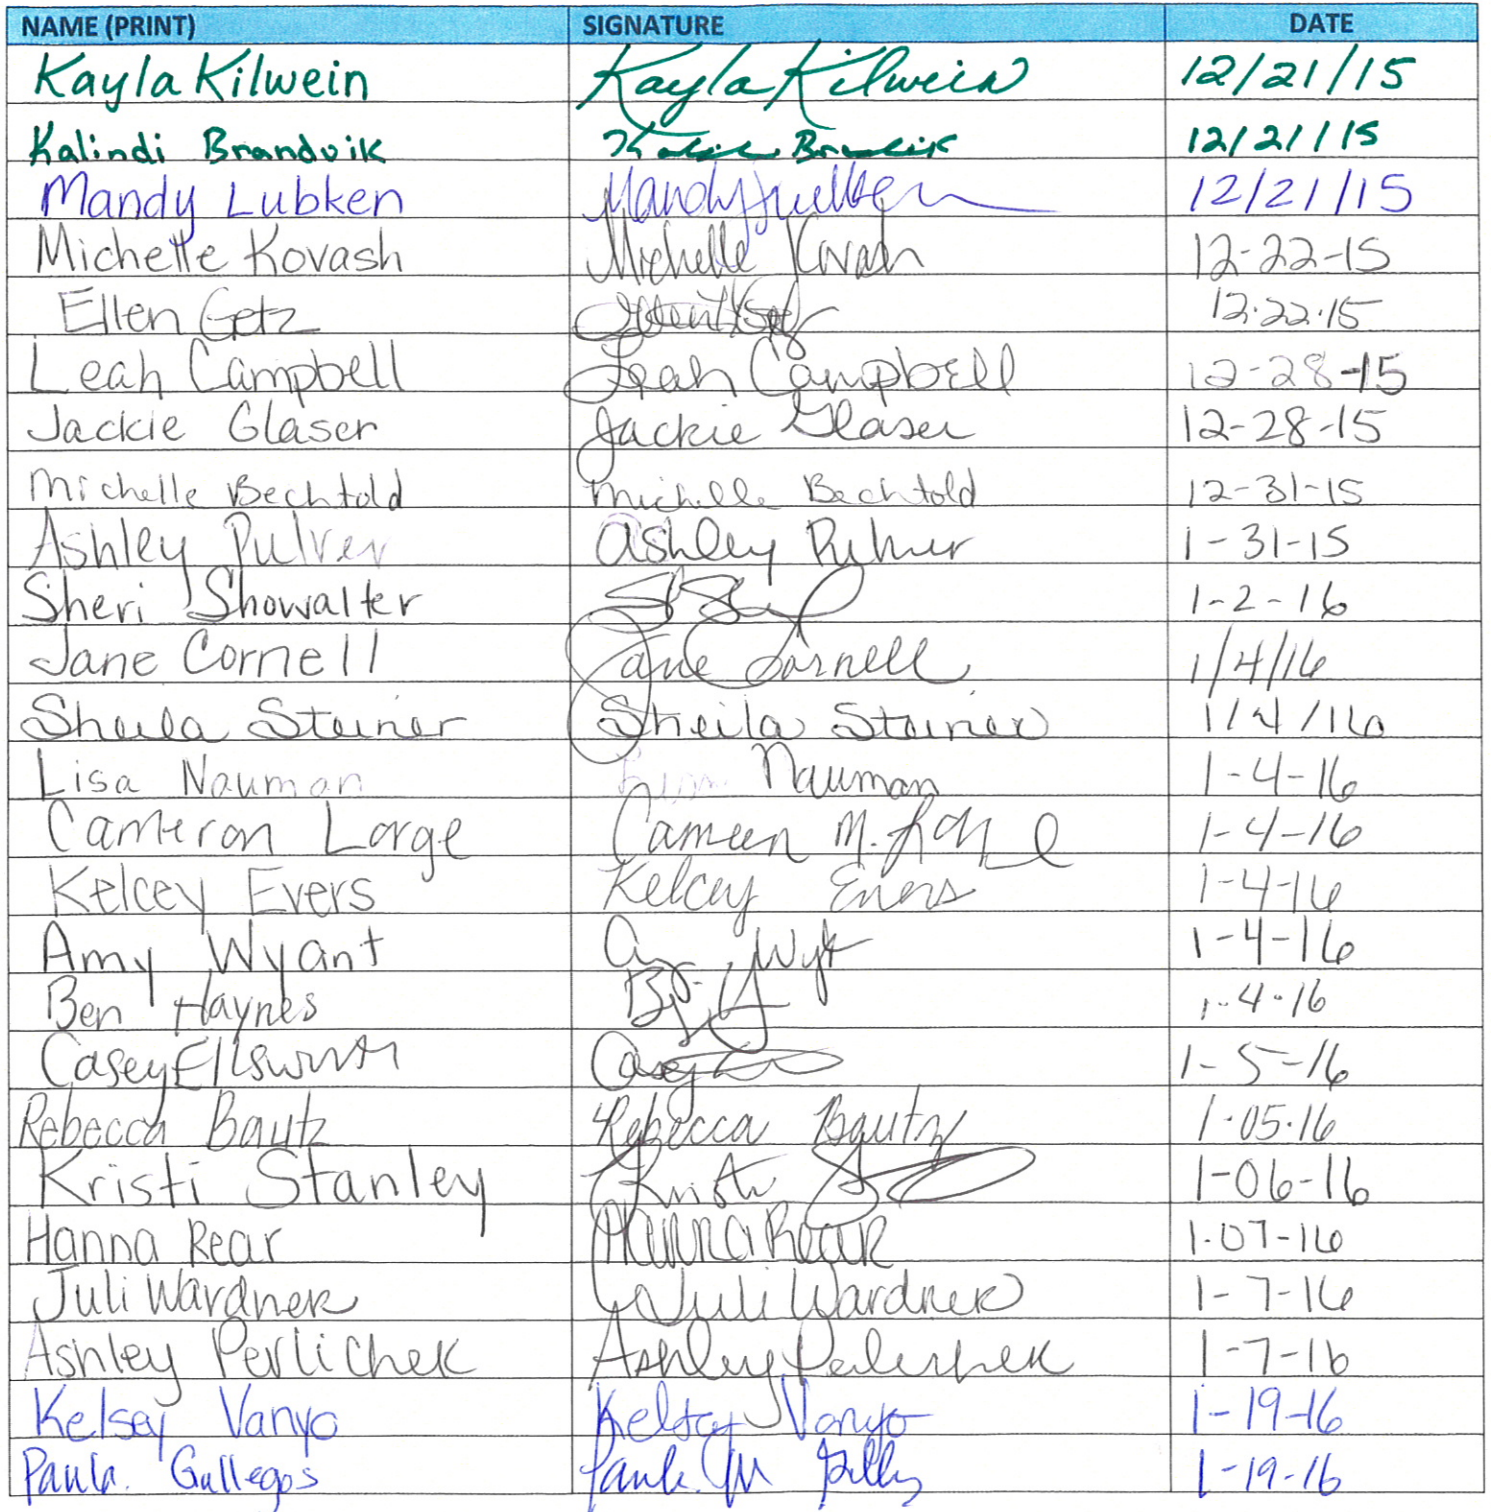 NAME (PRINT) SIGNATURE DATE
Kayla Kilwein Kayla Kilwein 12/21/15
Kalindi Brandvik 12/21/15
Mandy Lubken Mandy Lubken 12/21/15
Michelle Kovash Michelle Kovash 12-22-15
Ellen Getz 12.22.15
Leah Campbell Leah Campbell 12-28-15
Jackie Glaser Jackie Glaser 12-28-15
Michelle Bechtold Michelle Bechtold 12-31-15
Ashley Pulver Ashley Pulver 1-31-15
Sheri Showalter 1-2-16
Jane Cornell Jane Cornell 1/4/16
Sheila Steiner Sheila Steiner 1/4/16
Lisa Nauman Lisa Nauman 1-4-16
Cameron Large Cameron M. Large 1-4-16
Kelcey Evers Kelcey Evers 1-4-16
Amy Wyant 1-4-16
Ben Haynes 1-4-16
Casey Ellsworth Casey 1-5-16
Rebecca Bautz Rebecca Bautz 1-05-16
Kristi Stanley Kristi 1-06-16
Hanna Rear Hanna Rear 1-07-16
Juli Wardner Juli Wardner 1-7-16
Ashley Perlichek Ashley Perlichek 1-7-16
Kelsey Vanyo Kelsey Vanyo 1-19-16
Paula Gallegos Paula 1-19-16